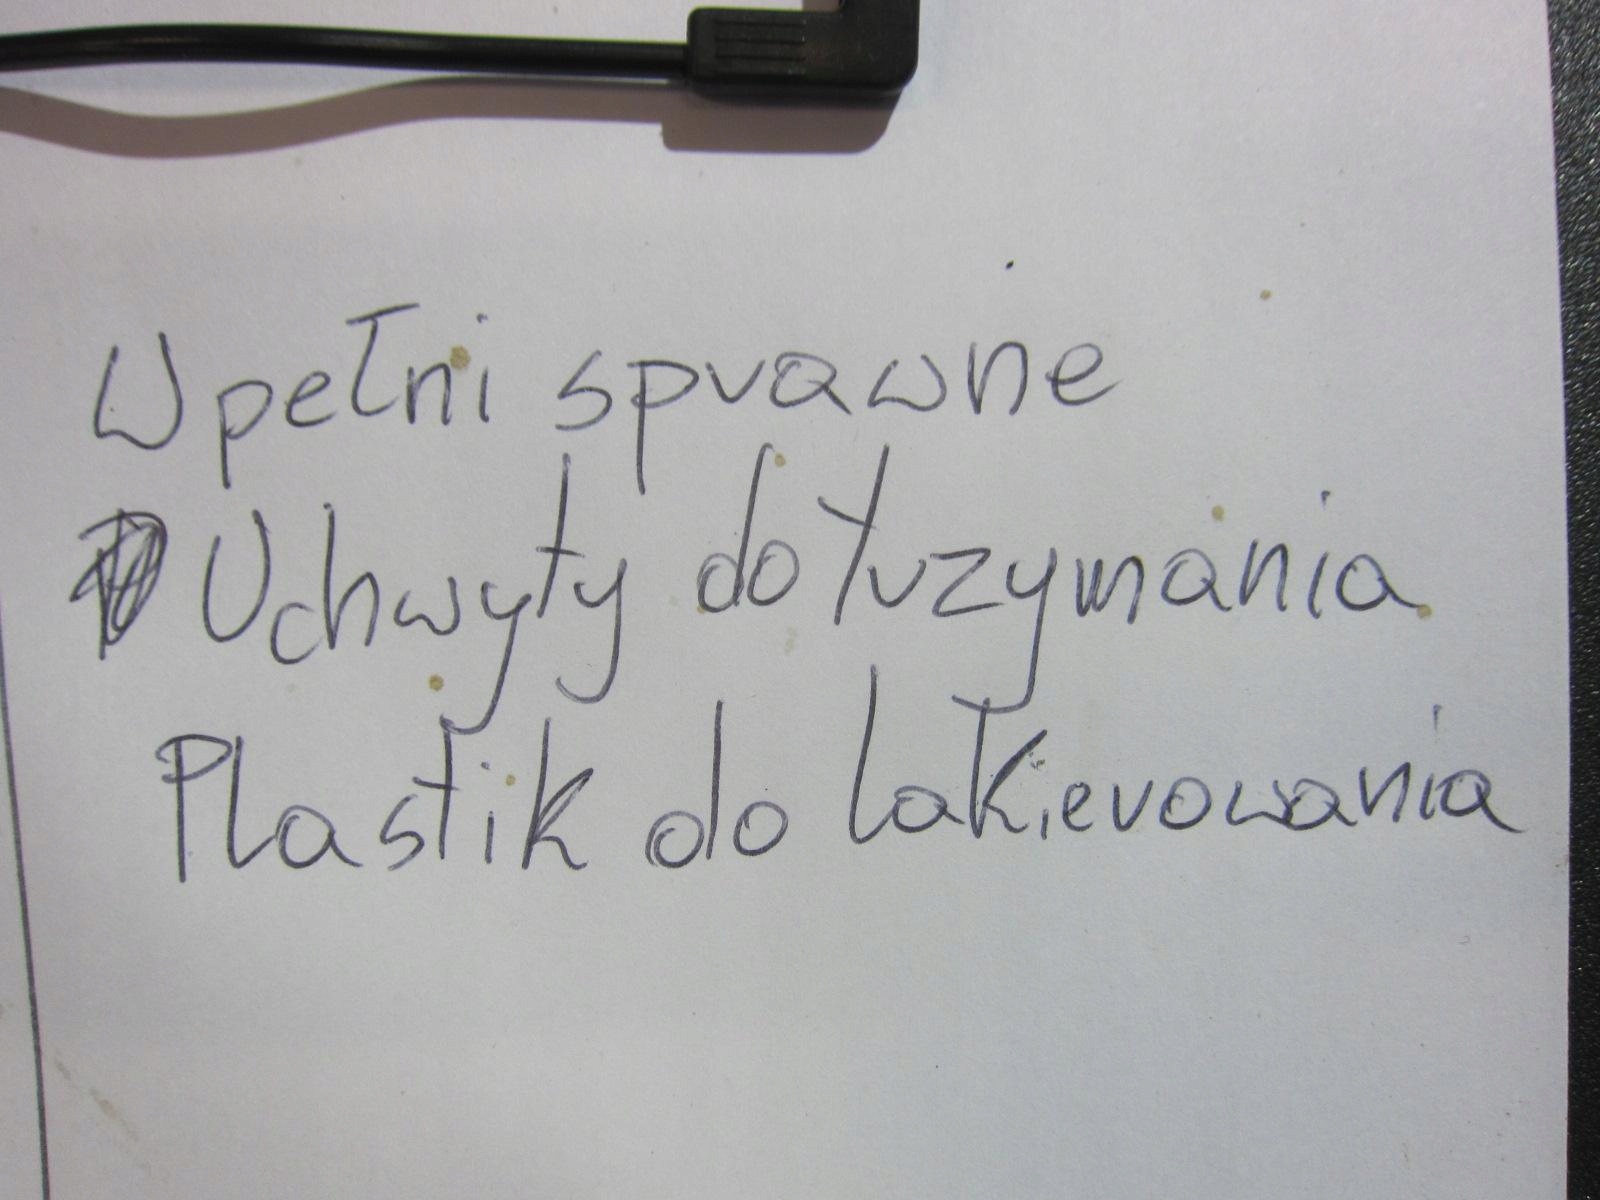 W pełni sprawne
Uchwyty do Yrzymania
Plastik do lakierowania